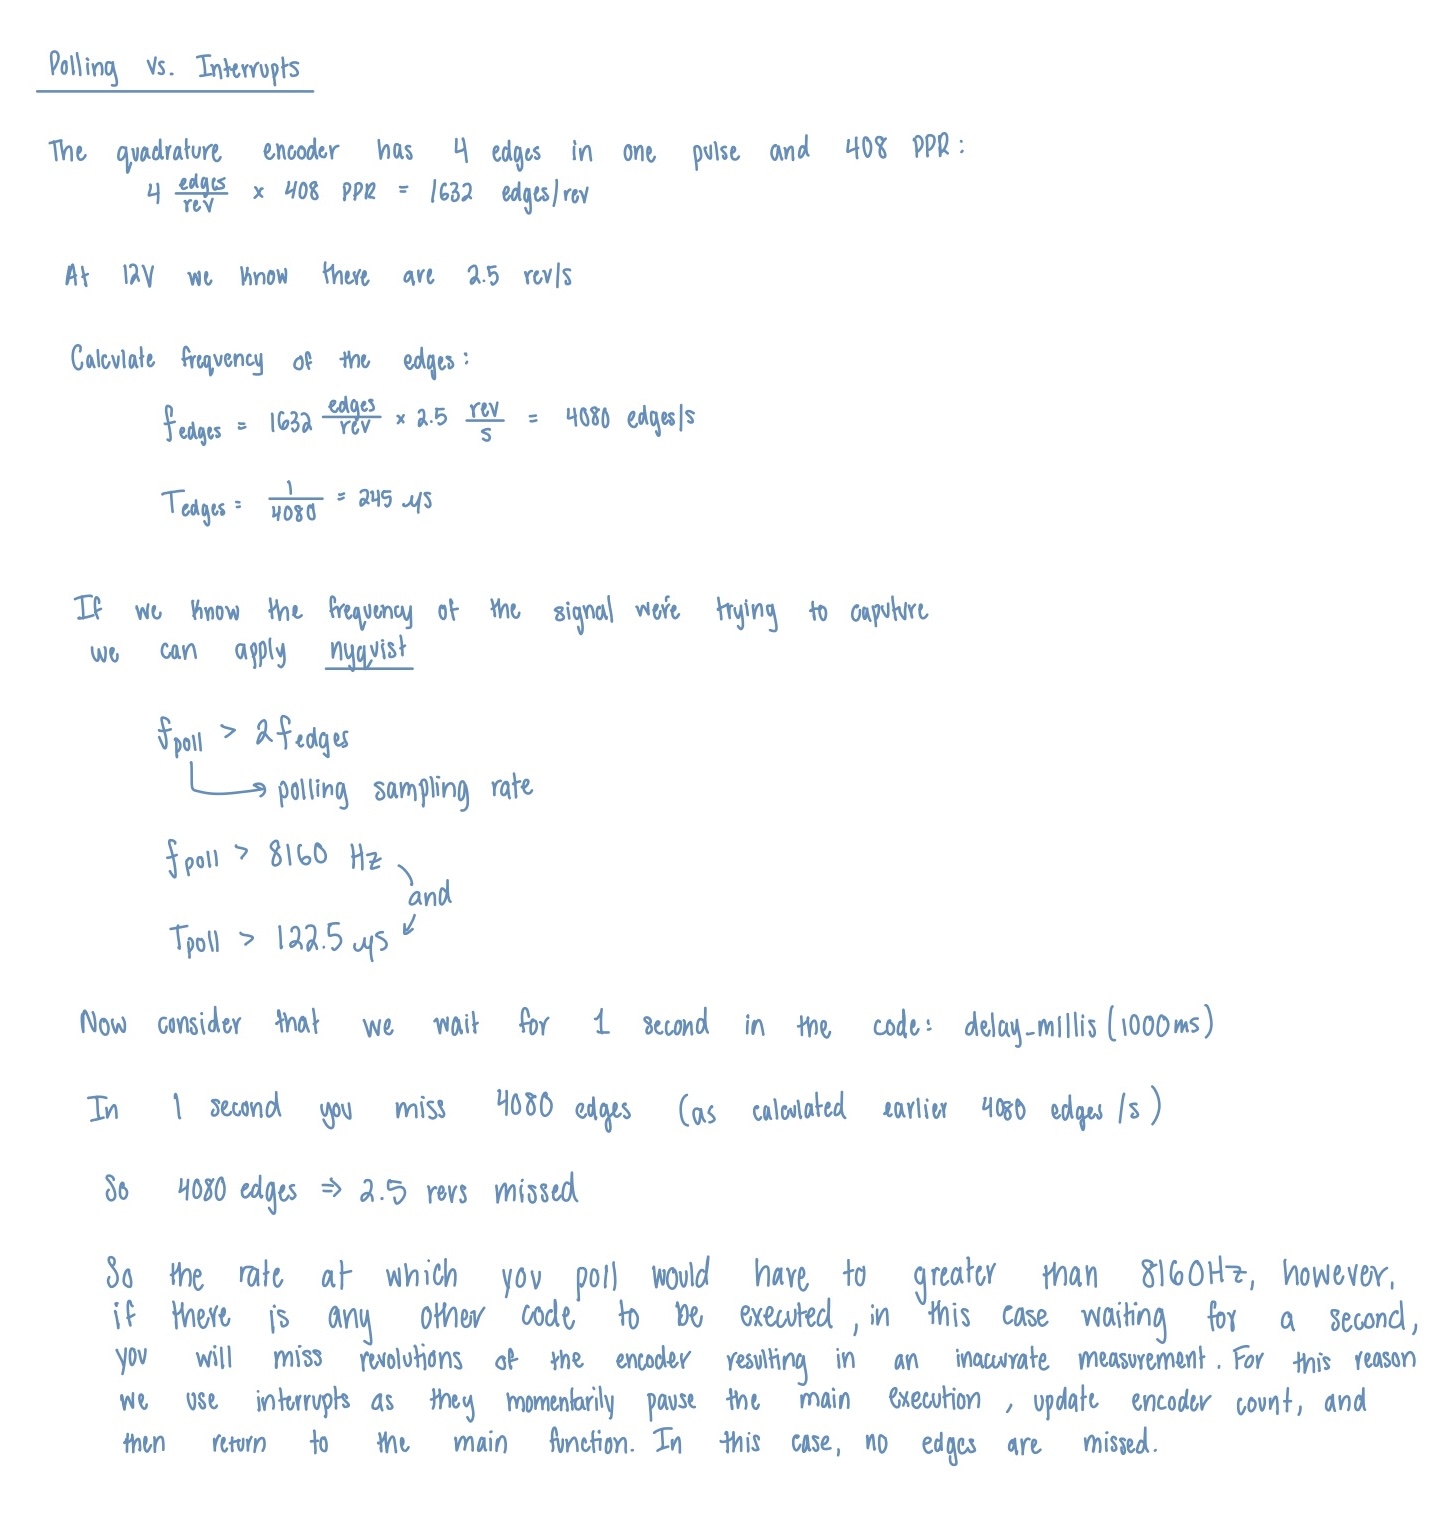 Polling vs. Interrupts
The quadrature encoder has 4 edges in one pulse and 408 PPR:
4 edges/rev x 408 PPR = 1632 edges/rev
At 12V we know there are 2.5 rev/s
Calculate frequency of the edges:
f edges = 1632 edges/rev x 2.5 rev/s = 4080 edges/s
T edges = 1/4080 = 245 μs
If we know the frequency of the signal we're trying to caputure
we can apply nyquist
f poll > 2 f edges
→ polling sampling rate
f poll > 8160 Hz
and
T poll > 122.5 μs
Now consider that we wait for 1 second in the code: delay_millis(1000ms)
In 1 second you miss 4080 edges (as calculated earlier 4080 edges/s)
So 4080 edges ⇒ 2.5 revs missed
So the rate at which you poll would have to greater than 8160Hz, however,
if there is any other code to be executed, in this case waiting for a second,
you will miss revolutions of the encoder resulting in an inaccurate measurement. For this reason
we use interrupts as they momentarily pause the main execution, update encoder count, and
then return to the main function. In this case, no edges are missed.